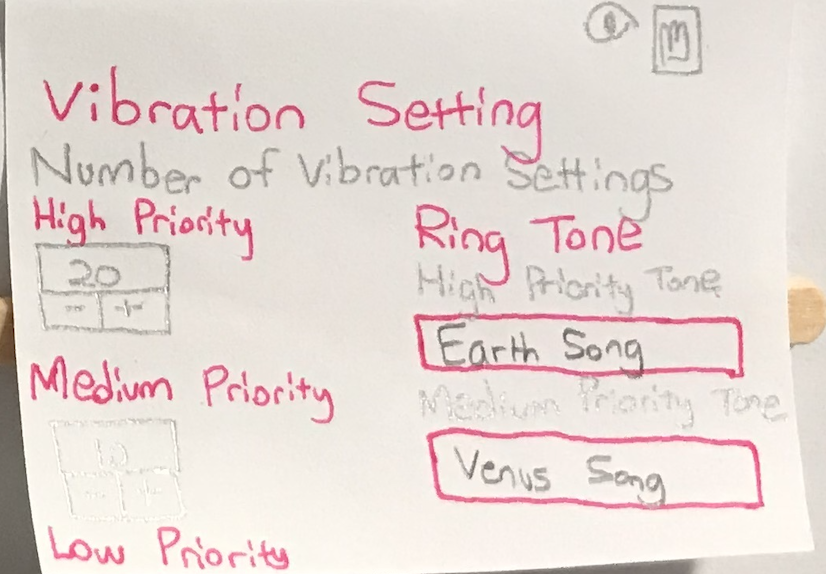 m
Vibration Setting
Number of Vibration Settings
High Priority
20
- +
Medium Priority
10
- +
Low Priority
Ring Tone
High Priority Tone
Earth Song
Medium Priority Tone
Venus Song